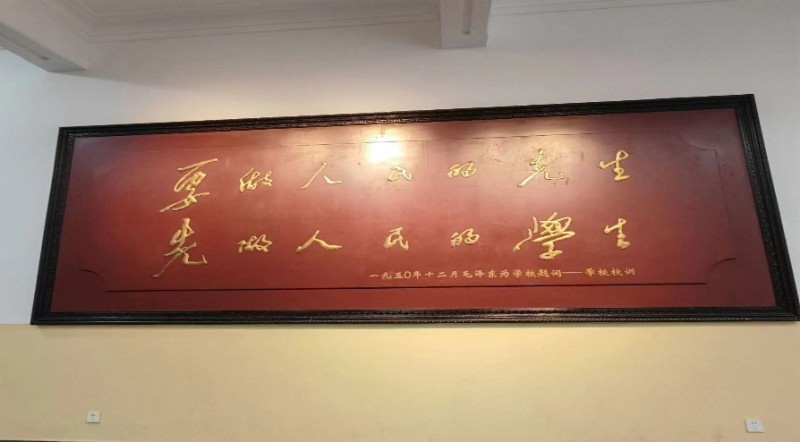 要做人民的先生
先做人民的學生
一九五〇年十二月毛泽东为学校题词——学校校训